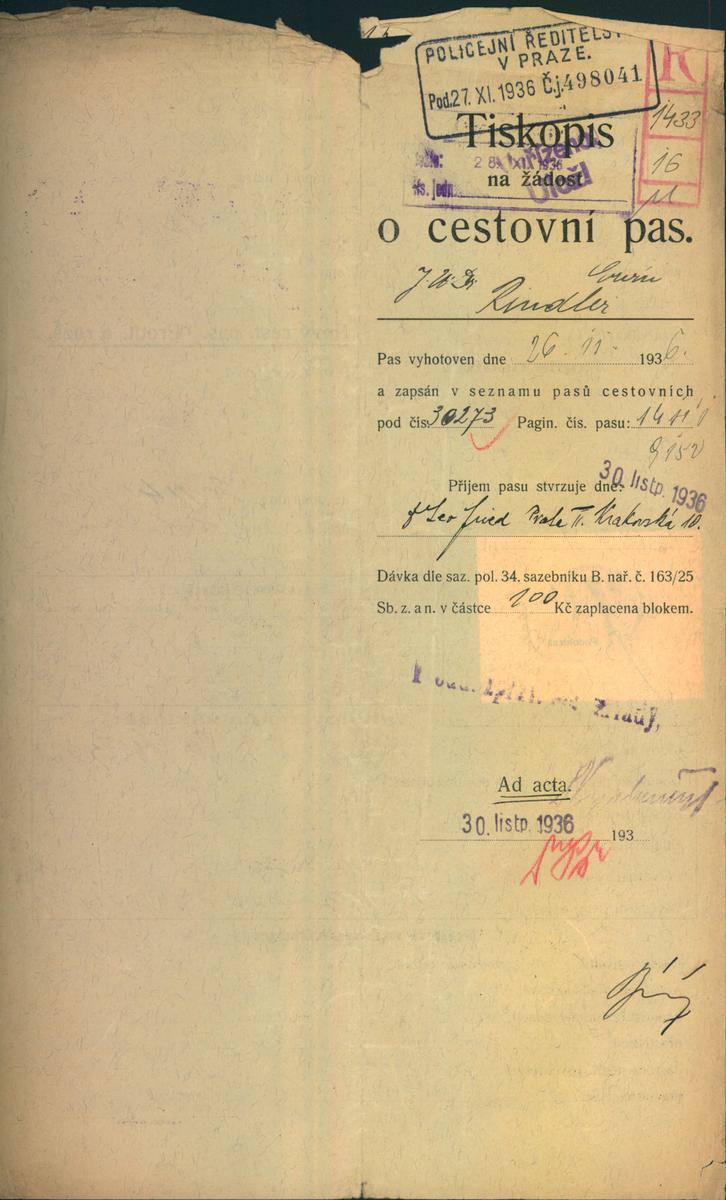 POLICEJNÍ ŘEDITELST
V PRAZE.
Pod. 27. XI. 1936 Č.j. 498041
R
1433
16
Tiskopis
na žádost
28. XI. 1936
čís. jedn.
o cestovní pas.
JUDr Erwin
Rindler
Pas vyhotoven dne 26. 11. 1936.
a zapsán v seznamu pasů cestovních
pod čís. 30273 Pagin. čís. pasu:
9152
30. listp. 1936
Příjem pasu stvrzuje dne:
Leo Fried Praha II. Krakovská 10.
Dávka dle saz. pol. 34. sazebníku B. nař. č. 163/25
Sb. z. a n. v částce 100 Kč zaplacena blokem.
Ad acta.
30. listp. 1936 193